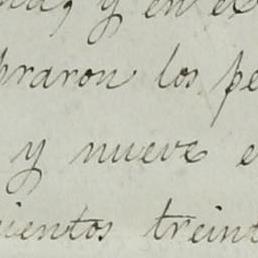 y en el
praron los pe
y nueve e
cientos treint